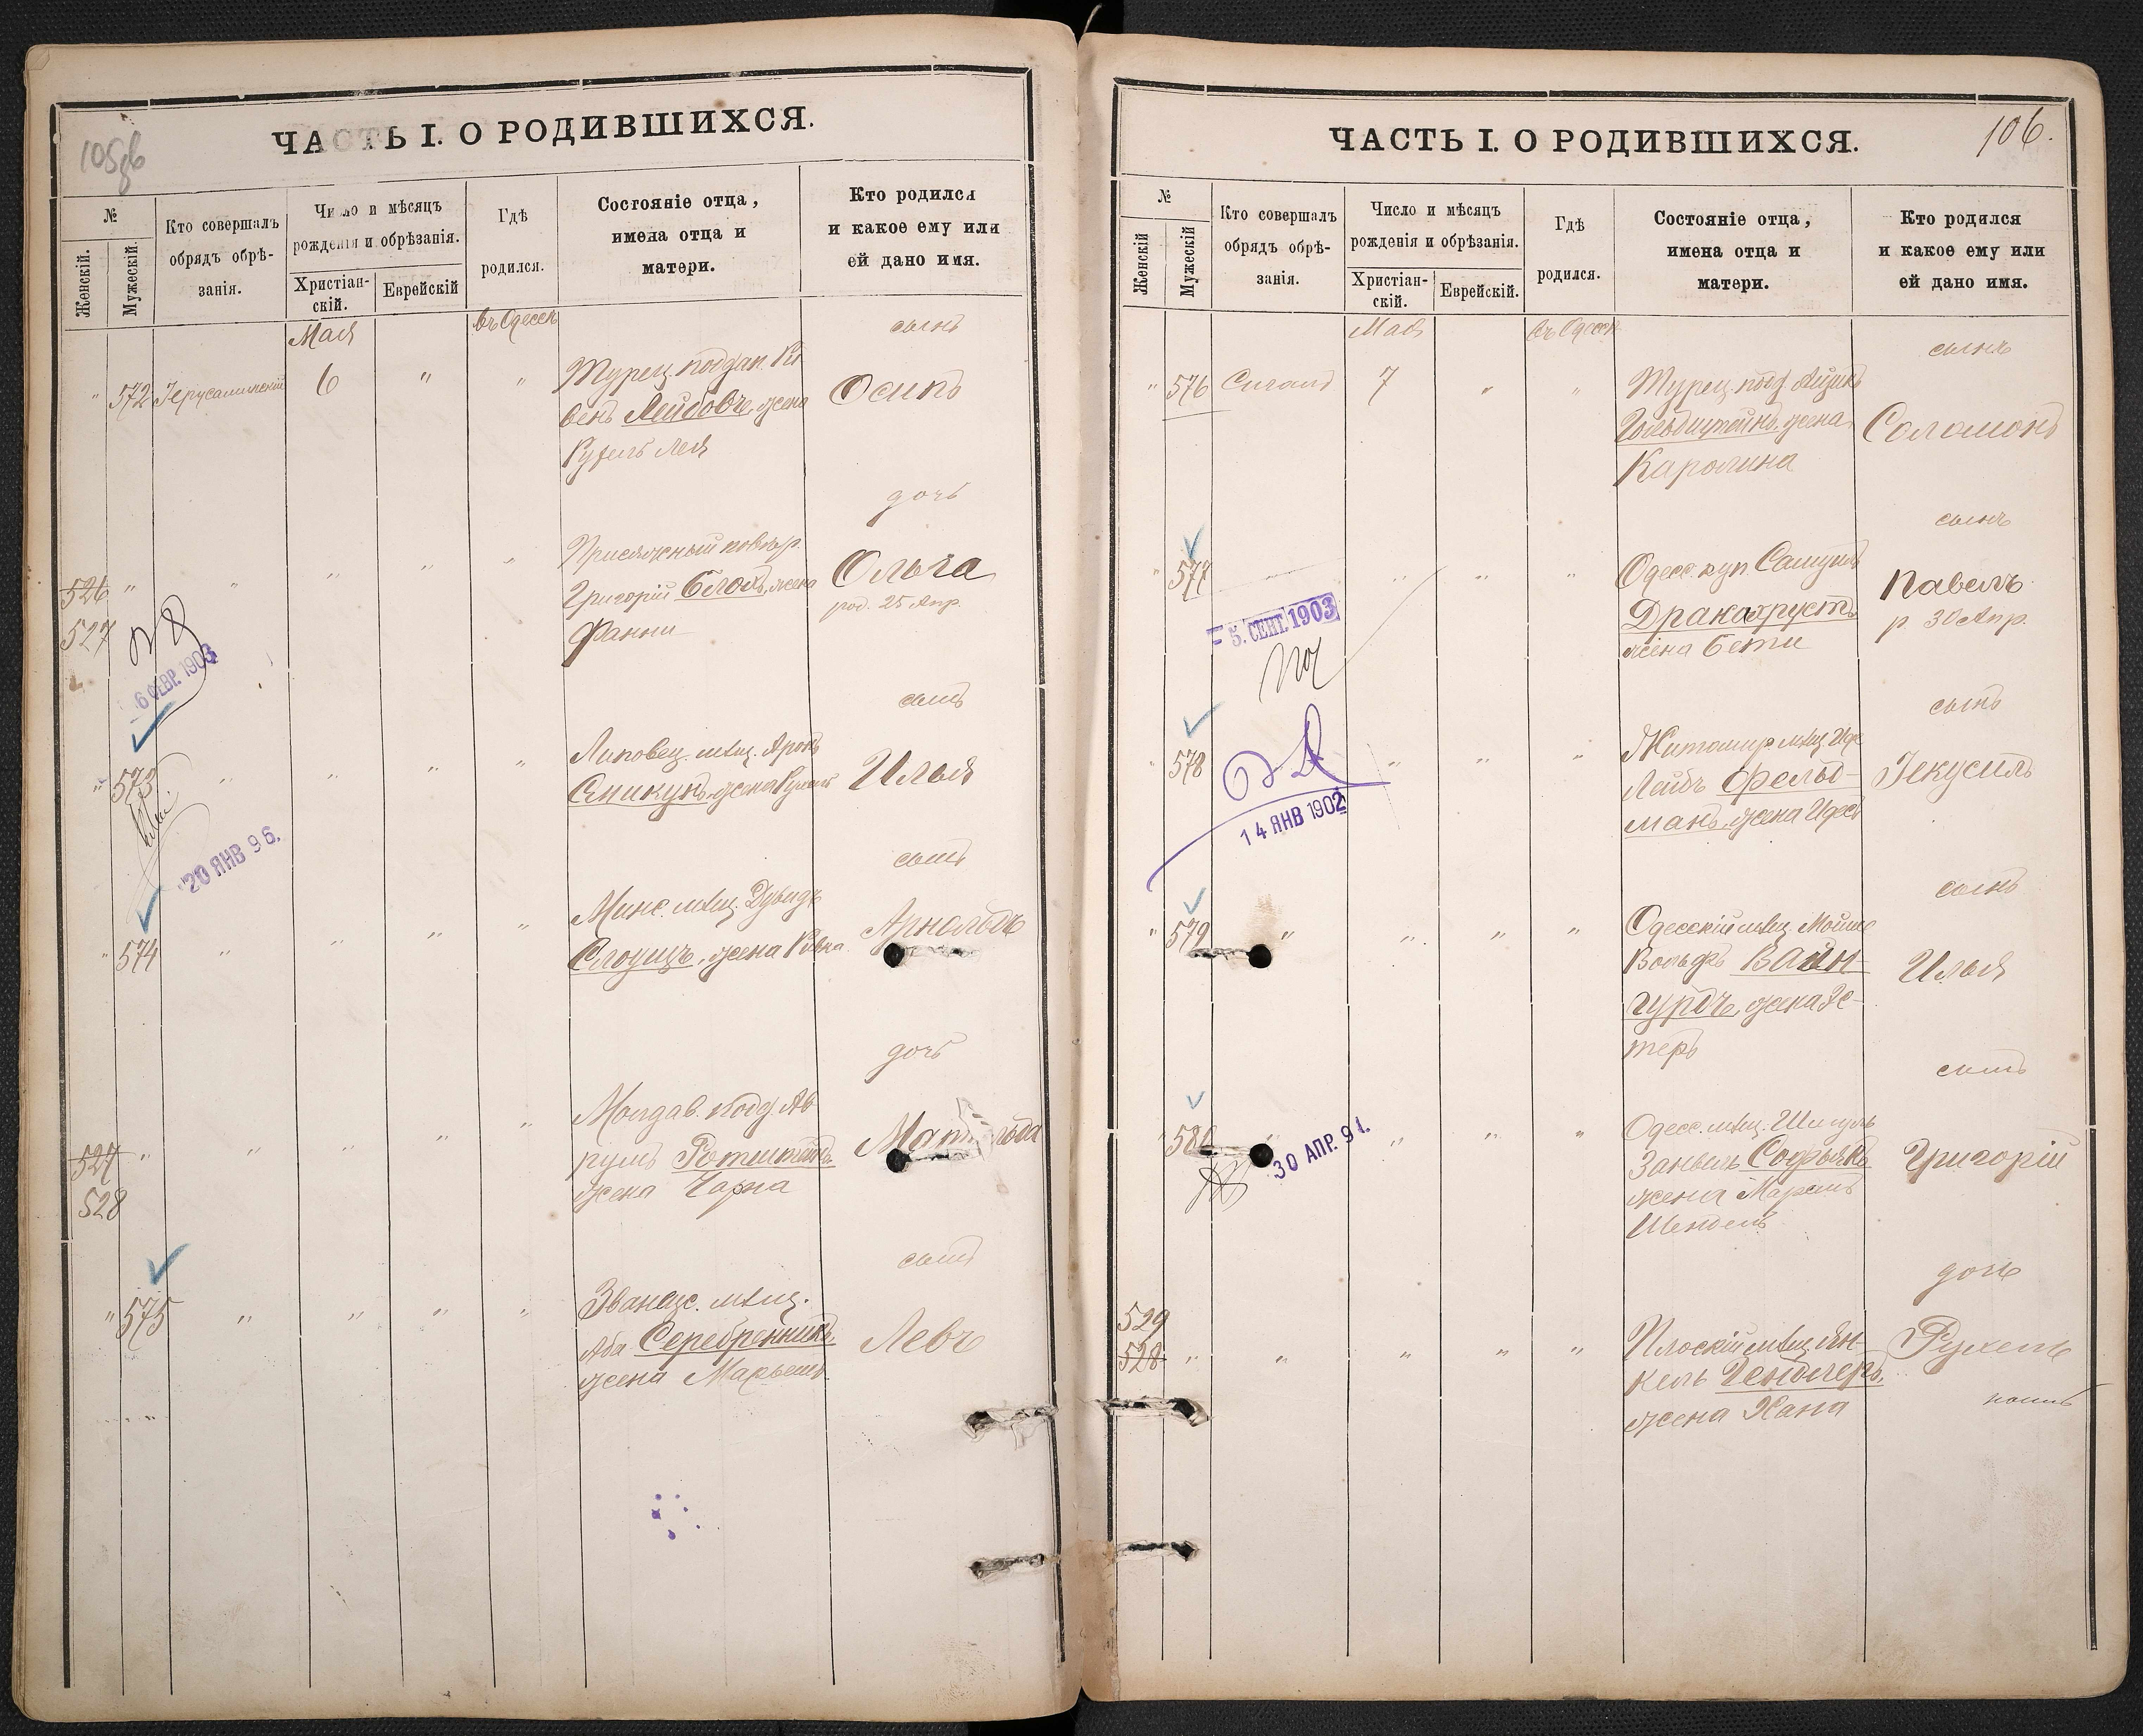 ЧАСТЬ I. О РОДИВШИХСЯ.
№
Женскій.
Мужескій.
Кто совершалъ
обрядъ обрѣ-
занія.
Число и мѣсяцъ
рожденія и обрѣзанія.
Христіан-
скій.
Еврейскій
Гдѣ
родился.
Состояніе отца,
имена отца и
матери.
Кто родился
и какое ему или
ей дано имя.
Мая
въ Одессѣ
сынъ
" 572 Іерусалимскій 6 " "
Турец. поддан. Ри
венъ Лейбовъ, жена
Рухель Лея
Осипъ
дочь
526 " " " " "
527
Присяжный повѣр.
Григорій Блохъ, жена
Фанни
Ольга
род. 25 Апр.
6 ФЕВР. 1903
сынъ
" 573 " " " "
Липовец. мѣщ. Аронъ
жена Рухель
Илья
20 ЯНВ 96.
сынъ
" 574 " " " "
Минс. мѣщ. Дувидъ
Слоущъ, жена Ривка
Арнольдъ
дочь
527 " " " " "
528
Молдав. подд. Ав
румъ Ротштейнъ
жена Чарна
Матильда
сынъ
" 575 " " " "
Званецс. мѣщ.
Аба Серебренникъ,
жена Марьемъ
Левъ
ЧАСТЬ I. О РОДИВШИХСЯ.
106.
№
Женскій
Мужескій
Кто совершалъ
обрядъ обрѣ-
занія.
Число и мѣсяцъ
рожденія и обрѣзанія.
Христіан-
скій.
Еврейскій.
Гдѣ
родился.
Состояніе отца,
имена отца и
матери.
Кто родился
и какое ему или
ей дано имя.
Мая
въ Одессѣ
сынъ
" 576 Сигалъ 7 " "
Турец. подд. Айзикъ
Гольдштейнъ, жена
Каролина
Соломонъ
сынъ
" 577 " " " "
Одесс. куп. Самуилъ
Дранахрустъ
жена Бети
Павелъ
р. 30 Апр.
5. СЕНТ. 1903
сынъ
" 578 " " "
Житомир мѣщ. Иде
Лейбъ Фельд-
манъ, жена Идес
Іекусиль
14 ЯНВ 1902
сынъ
" 579 " " " "
Одесскій мѣщ Мойше
Вольфъ Вайн-
гуртъ, жена Эс-
теръ
Илья
сынъ
" 580 " " " "
30 АПР. 91.
Одесс. мѣщ. Шмуль
Занвель
жена Марьемъ
Шендель
Григорій
дочь
529
528 " " " " "
Плоскій мѣщ. Ян-
кель Гендлеръ,
жена Хана
Рухель